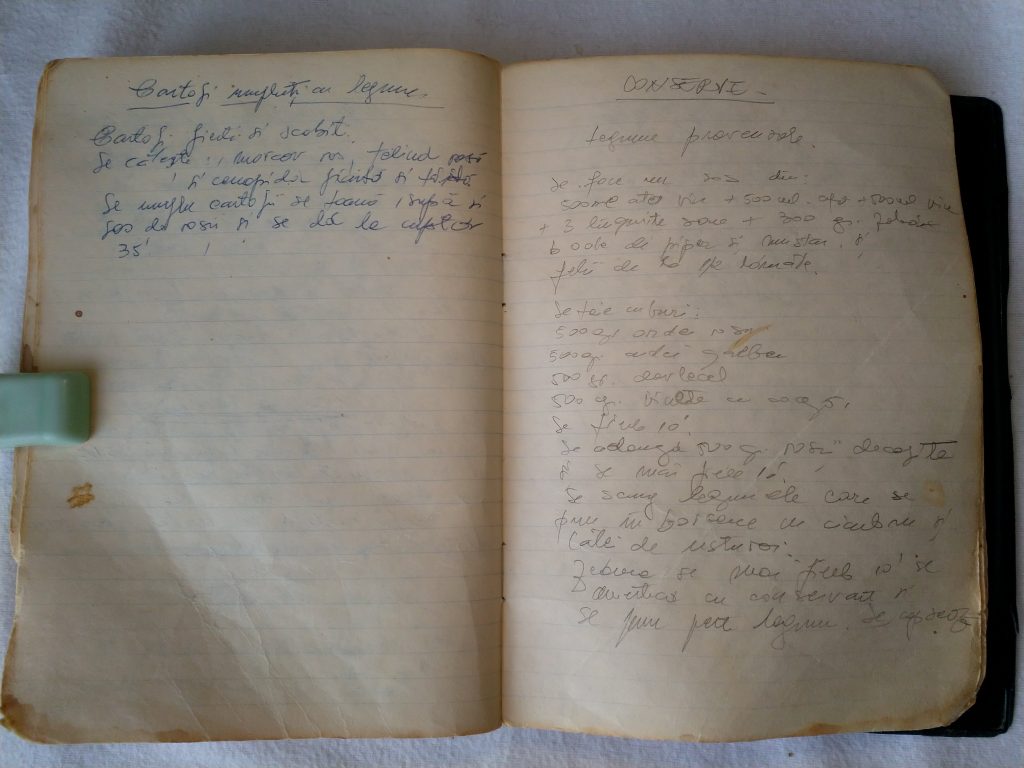 Cartofi umpluți cu legume.
Cartofi fierți și scobiți.
Se călește morcov ras, țelină rasă
și conopidă fiartă și
Se umplu cartofii se toarnă supă și
sos de roșii și se dă la cuptor
35'
CONSERVE
legume provensale.
Se face un sos din:
500 ml oțet vin + 500 ml. apă + 500 ml vin
+ 3 lingurițe sare + 300 g. zahăr
boabe de piper și muștar, și
felii de
Se taie cuburi:
500 g. ardei roșu
500 g. ardei galben
500 g. dovlecel
500 g. vinete cu coajă,
Se fierb 10'.
Se adaugă 500 g. roșii decojite
și se mai fierb 10'.
Se scurg legumele care se
pun în borcane cu cimbru și
căței de usturoi.
Zeama se mai fierbe 10' se
cu conservant și
se pune peste legume. Se